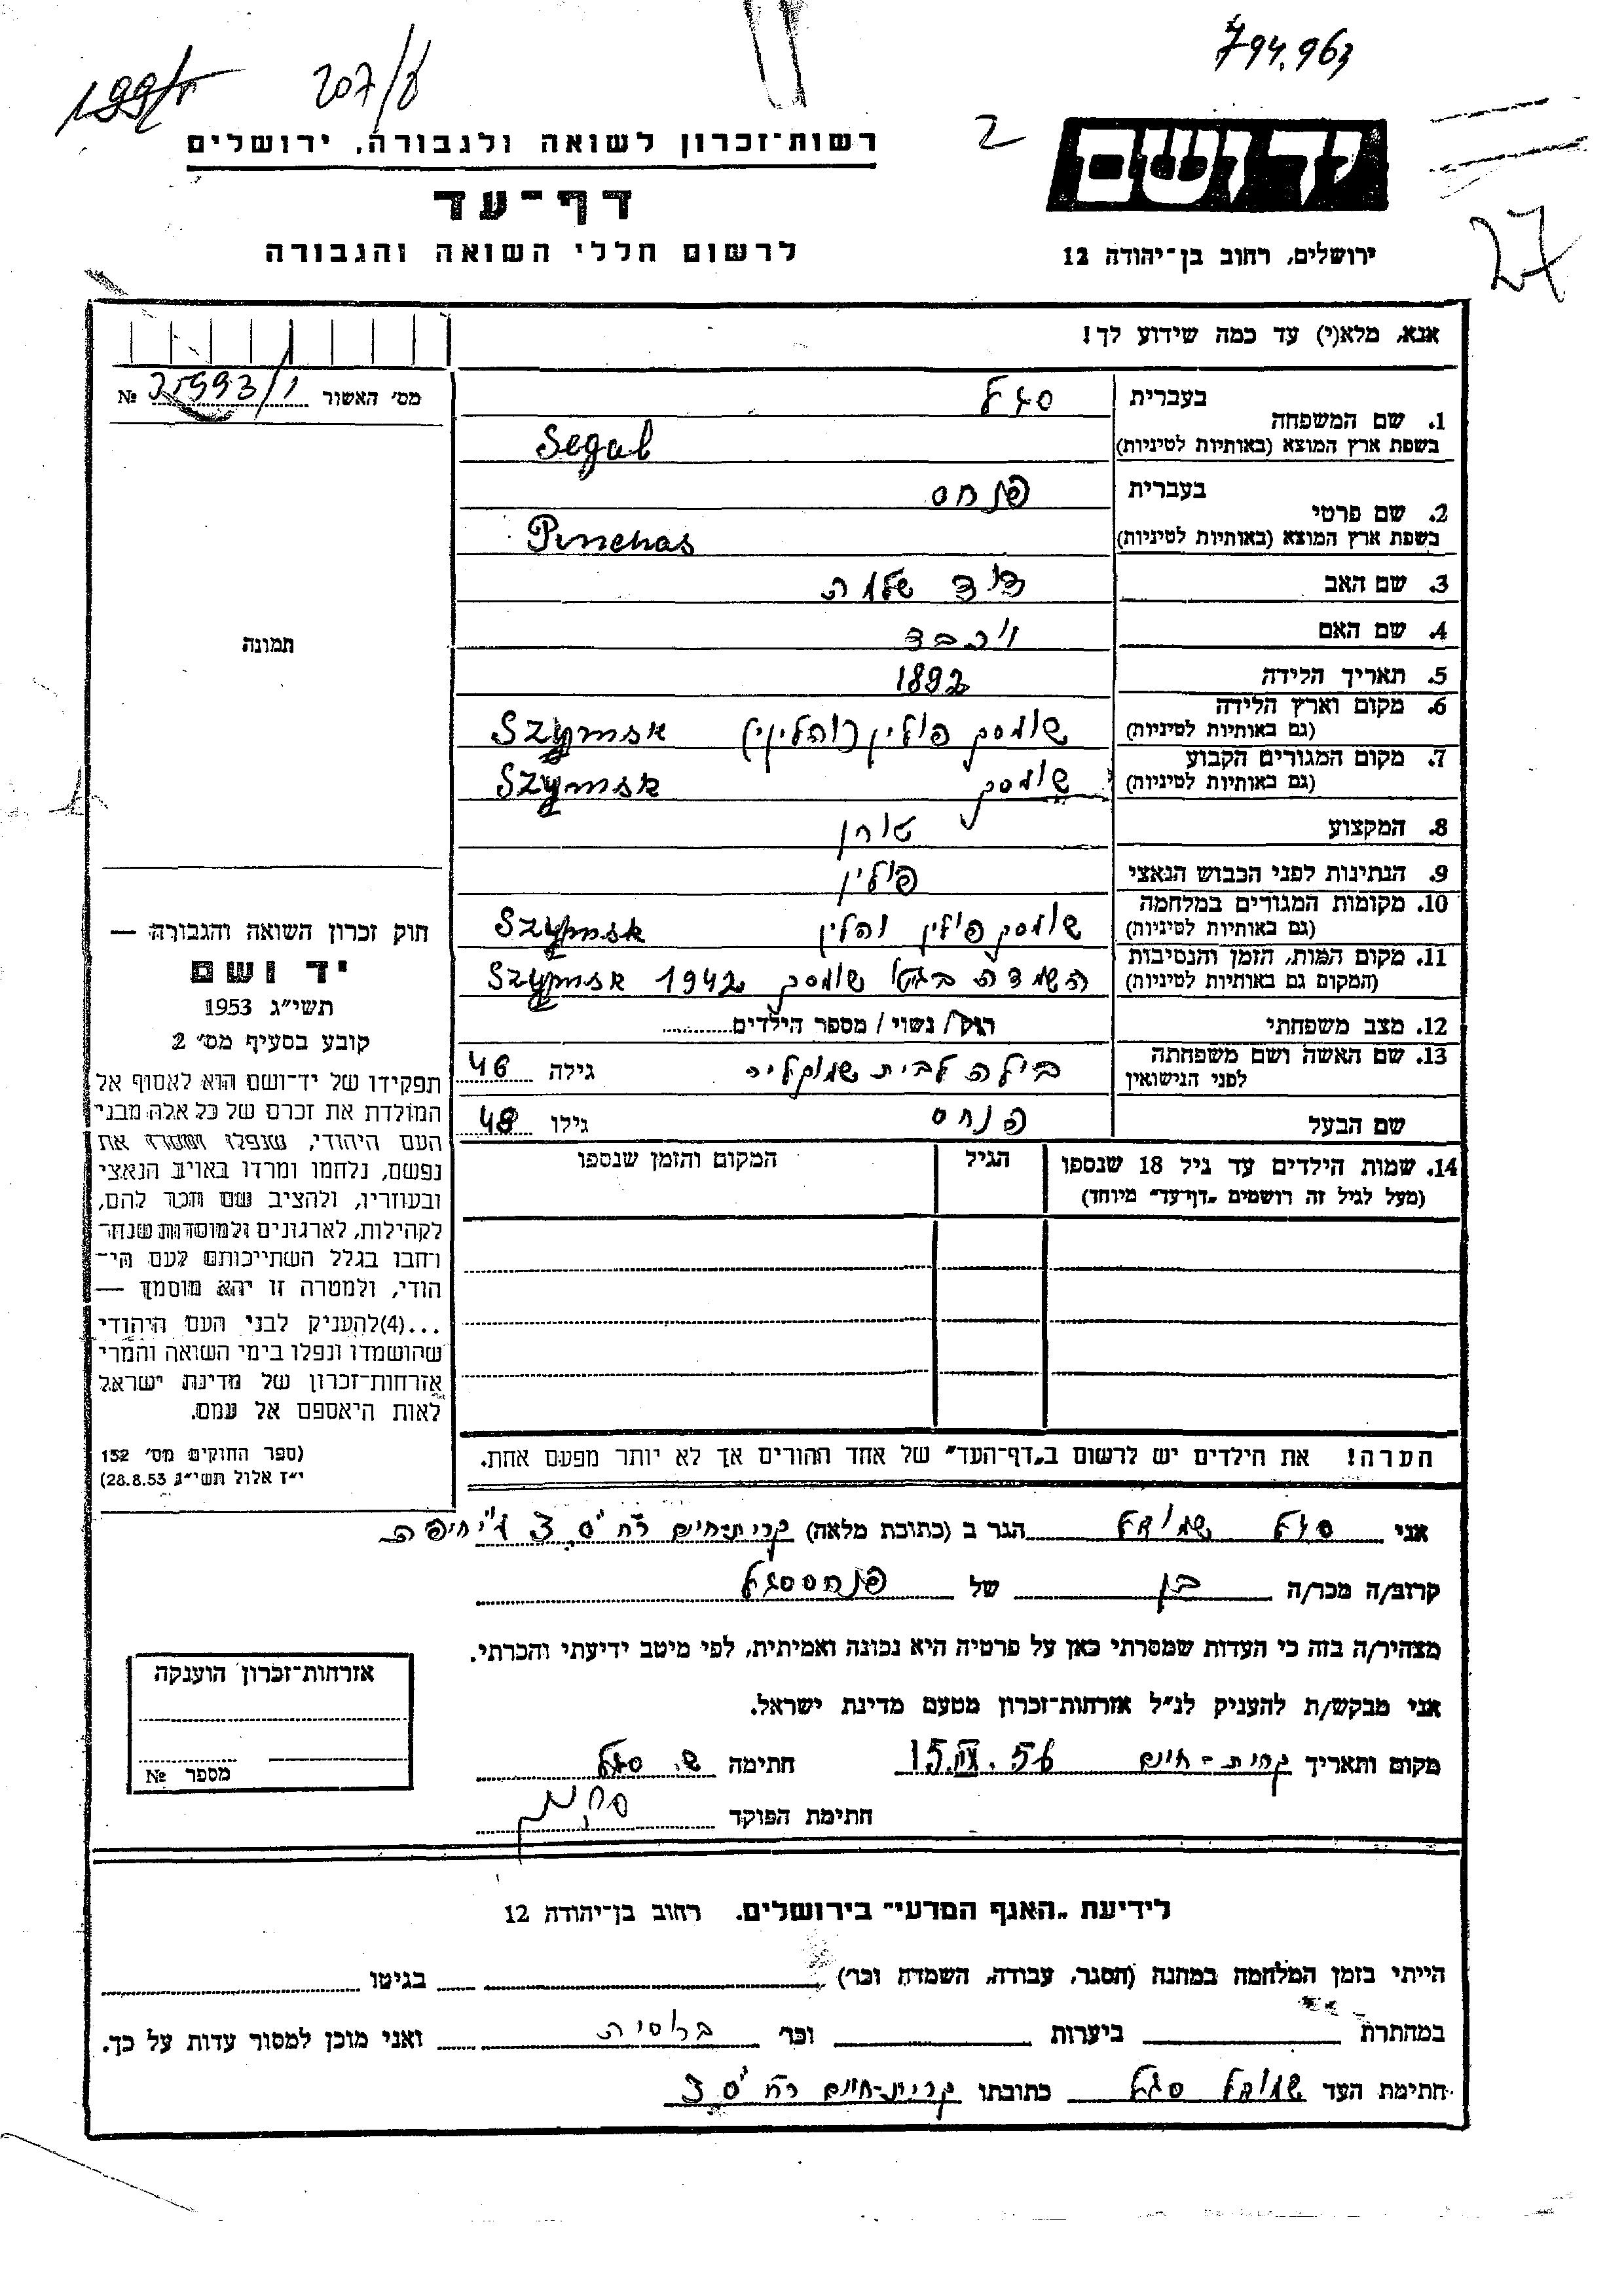 794.963
207/8
רשות־זכרון לשואה ולגבורה, ירושלים
2
יד ושם
דף־עד
לרשום חללי השואה והגבורה
ירושלים, רחוב בן־יהודה 12
27
אנא, מלא(י) עד כמה שידוע לך!
מס׳ האשור № 35993/1
1. שם המשפחה
בעברית סגל
בשפת ארץ המוצא (באותיות לטיניות) Segal
2. שם פרטי
בעברית פנחס
בשפת ארץ המוצא (באותיות לטיניות) Pinchas
3. שם האב דוד שלמה
4. שם האם יוכבד
5. תאריך הלידה 1892
6. מקום וארץ הלידה (גם באותיות לטיניות) שומסק פולין (והלין) Szymsk
7. מקום המגורים הקבוע (גם באותיות לטיניות) שומסק Szymsk
8. המקצוע טוחן
9. הנתינות לפני הכבוש הנאצי פולין
10. מקומות המגורים במלחמה (גם באותיות לטיניות) שומסק פולין והלין Szymsk
11. מקום המות, הזמן והנסיבות (המקום גם באותיות לטיניות) השמדה בגטו שומסק 1942 Szymsk
12. מצב משפחתי רווק / נשוי / מספר הילדים
13. שם האשה ושם משפחתה לפני הנישואין בילה לבית גילה 46
שם הבעל פנחס גילו 48
14. שמות הילדים עד גיל 18 שנספו (מעל לגיל זה רושמים „דף־עד״ מיוחד)
הגיל
המקום והזמן שנספו
הערה! את הילדים יש לרשום ב„דף־העד״ של אחד ההורים אך לא יותר מפעם אחת.
תמונה
חוק זכרון השואה והגבורה —
יד ושם
תשי״ג 1953
קובע בסעיף מס׳ 2
תפקידו של יד־ושם הוא לאסוף אל
המולדת את זכרם של כל אלה מבני
העם היהודי, שנפלו ומסרו את
נפשם, נלחמו ומרדו באויב הנאצי
ובעוזריו, ולהציב שם וזכר להם,
לקהילות, לארגונים ולמוסדות שנח־
רחבו בגלל השתייכותם לעם הי־
הודי, ולמטרה זו יהא מוסמך —
...(4)להעניק לבני העם היהודי
שהושמדו ונפלו בימי השואה והמרי
אזרחות־זכרון של מדינת ישראל
לאות היאספם אל עמם.
(ספר החוקים מס׳ 132
י״ז אלול תשי״ג 28.8.53)
אני סגל שמואל הגר ב (כתובת מלאה) קרית־חיים רח׳ ס׳ 3 ע״י חיפה
קרוב/ה מכר/ה בן של פנחס סגל
מצהיר/ה בזה כי העדות שמסרתי כאן על פרטיה היא נכונה ואמיתית, לפי מיטב ידיעתי והכרתי.
אני מבקש/ת להעניק לנ״ל אזרחות־זכרון מטעם מדינת ישראל.
מקום ותאריך קרית-חיים חתימה ש. סגל
חתימת הפוקד
אזרחות־זכרון הוענקה
מספר №
לידיעת „האגף המדעי״ בירושלים. רחוב בן־יהודה 12
הייתי בזמן המלחמה במחנה (הסגר, עבודה, השמדה וכו׳) בגיטו
במחתרת ביערות וכו׳ ברוסיה ואני מוכן למסור עדות על כך.
חתימת העד שמואל סגל כתובתו קרית-חיים רח׳ ס׳ 3